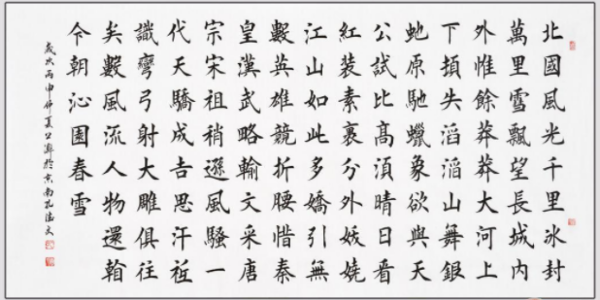 北國風光千里冰封
萬里雪飄望長城內
外惟餘莽莽大河上
下頓失滔滔山舞銀
虵原馳蠟象欲與天
公試比髙須晴日看
紅裝素裹分外妖嬈
江山如此多嬌引無
數英雄競折腰惜秦
皇漢武略輸文采唐
宗宋祖稍遜風騷一
代天驕成吉思汗祗
識彎弓射大雕俱往
矣數風流人物還看
今朝沁園春雪
歲次丙申仲夏於京南